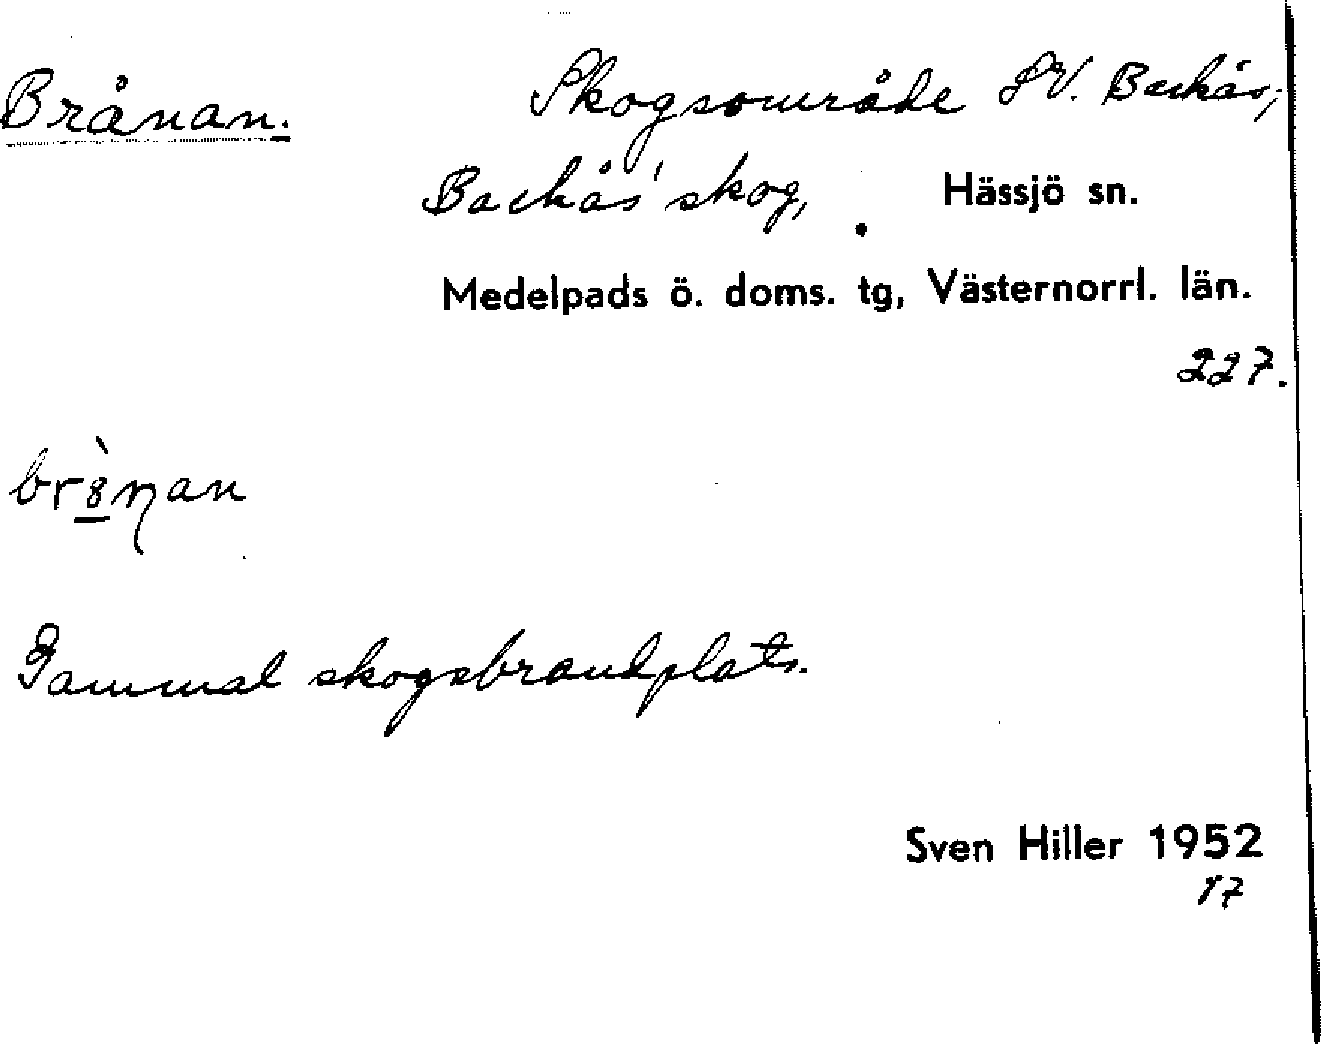 Brånan. Skogsområde SV. Backås,
Backås' skog, Hässjö sn.
Medelpads ö. doms. tg, Västernorrl. län.
227.
Gammal skogsbrandplats.
Sven Hiller 1952
17